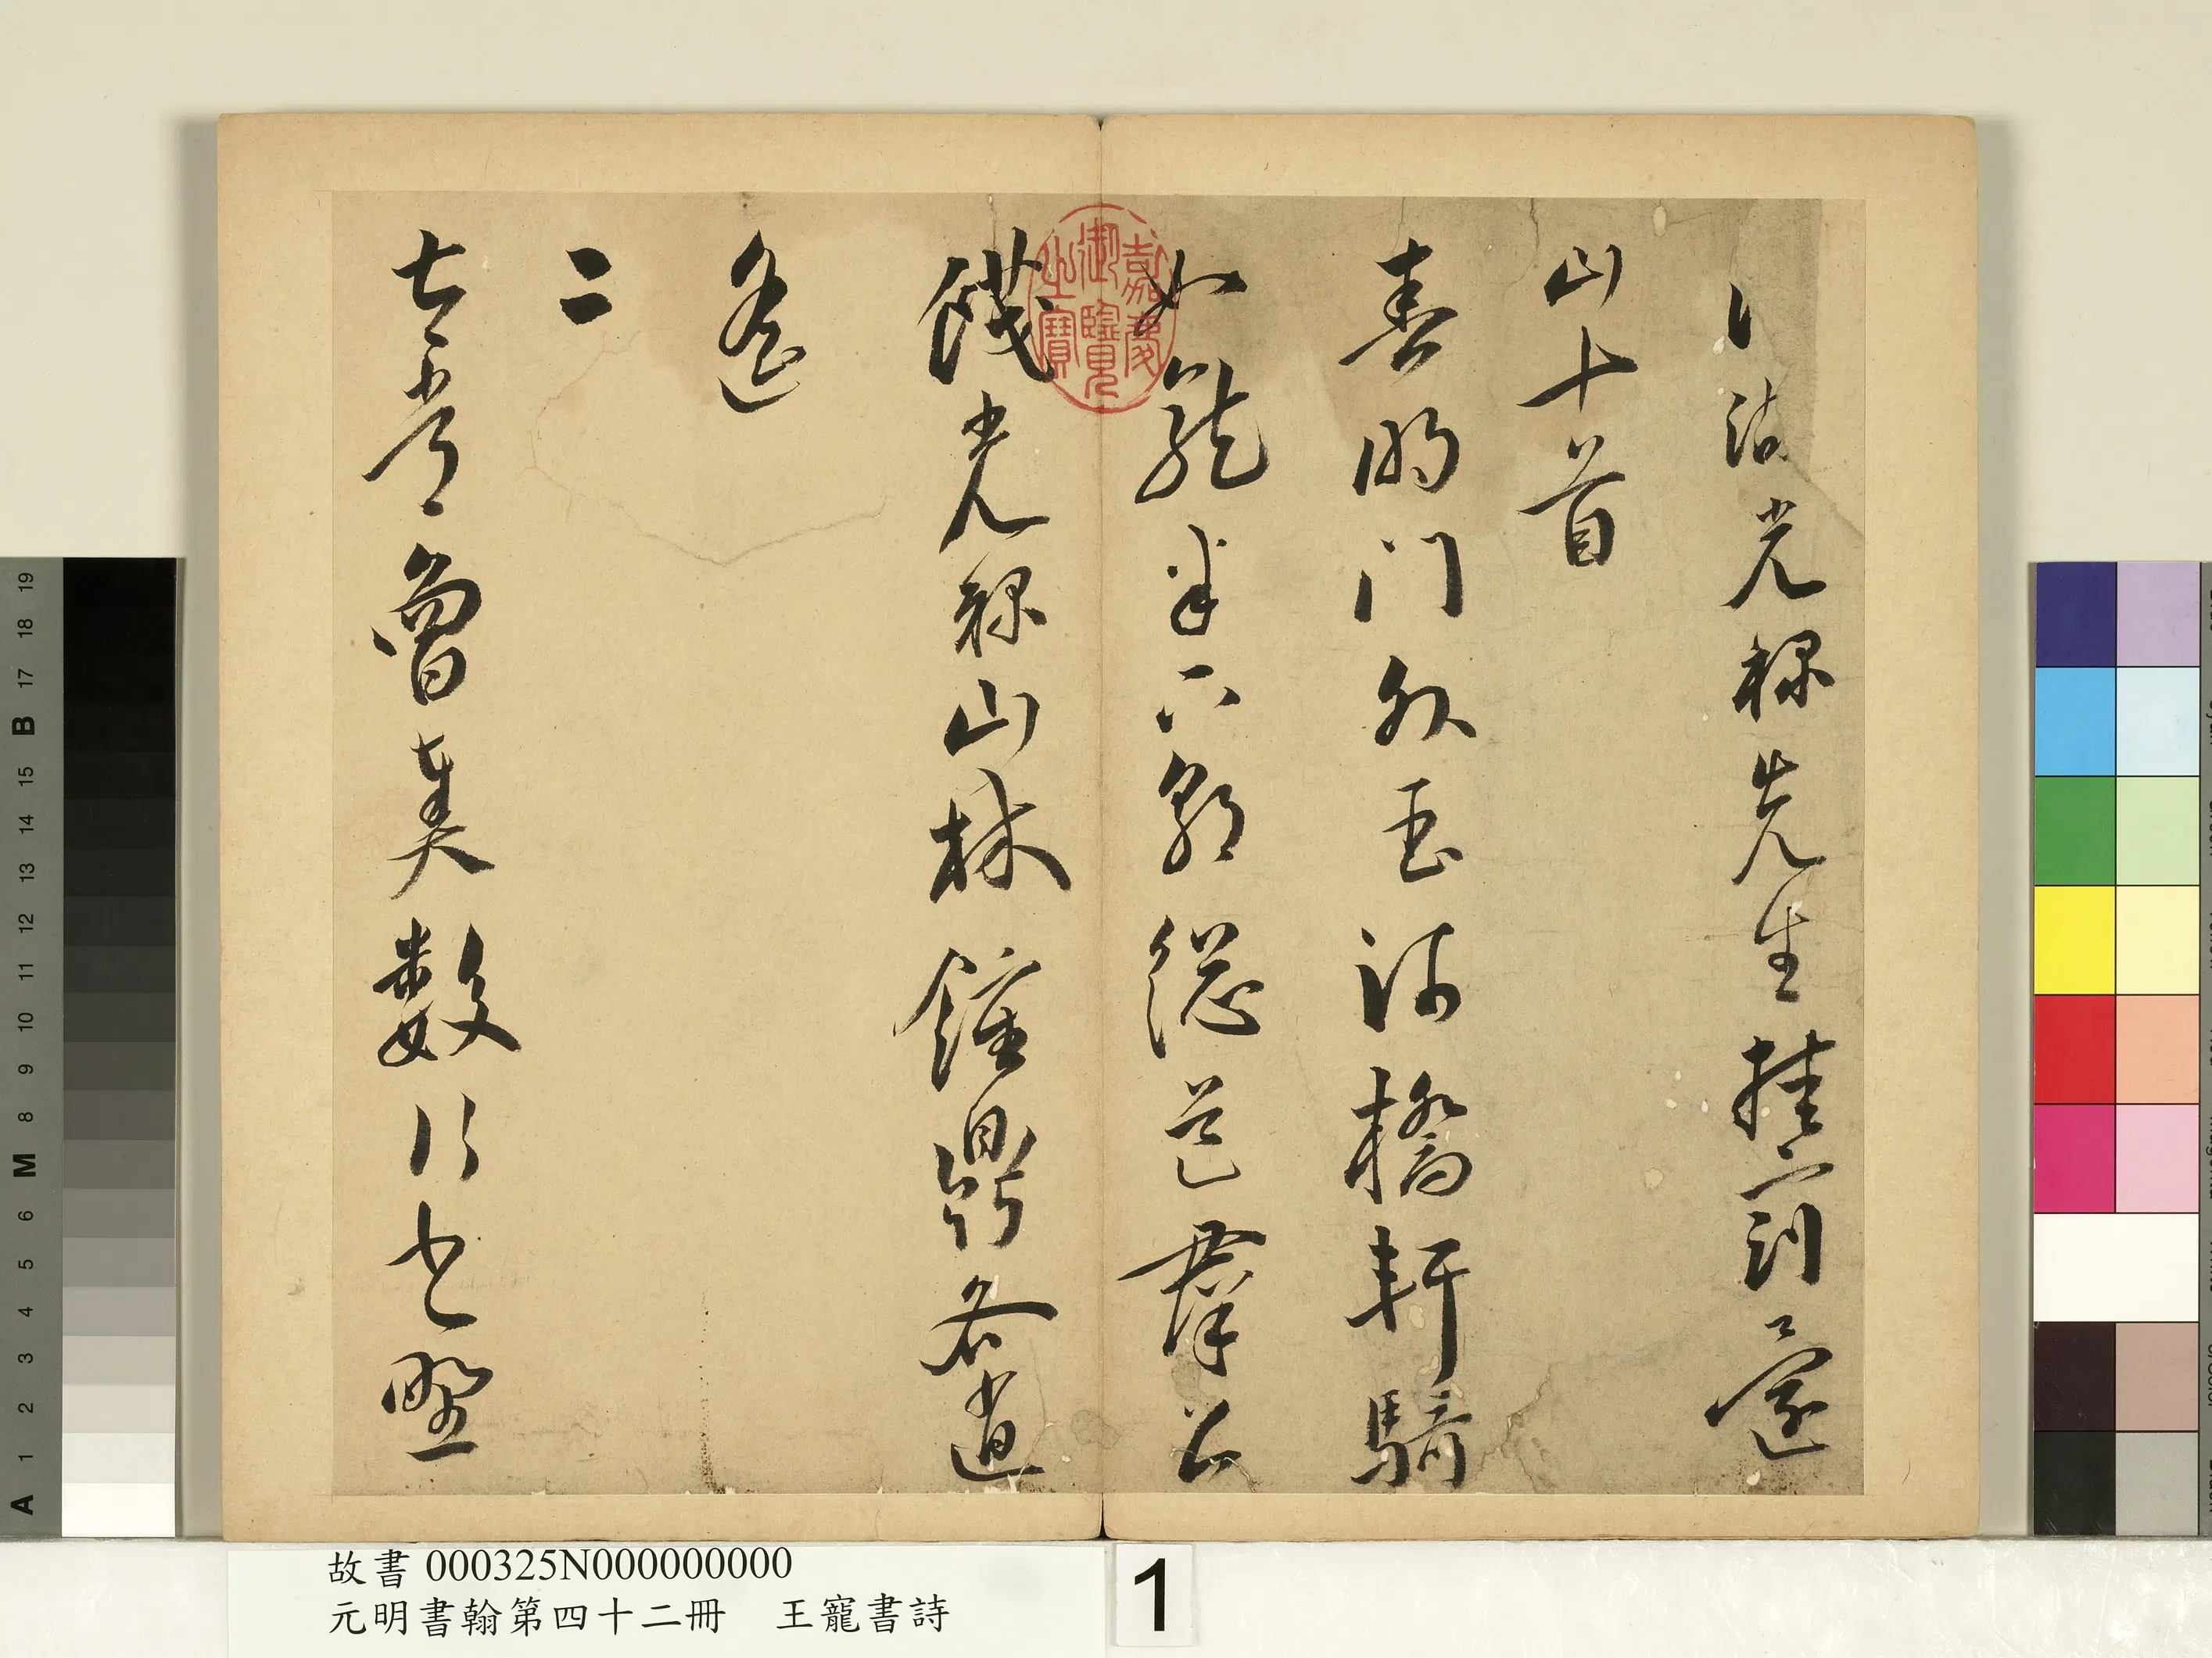 光祿先生挂冠還
山十首
春明門外玉河橋軒騎
如龍半下朝總是群公
餞光祿山林鐘鼎各逍
遙
二
曾奏數行書野
嘉慶御覽之寶
故書 000325N000000000
元明書翰第四十二冊 王寵書詩
1
19
18
17
B
15
14
13
12
11
10
9
8
M
6
5
4
3
2
1
A